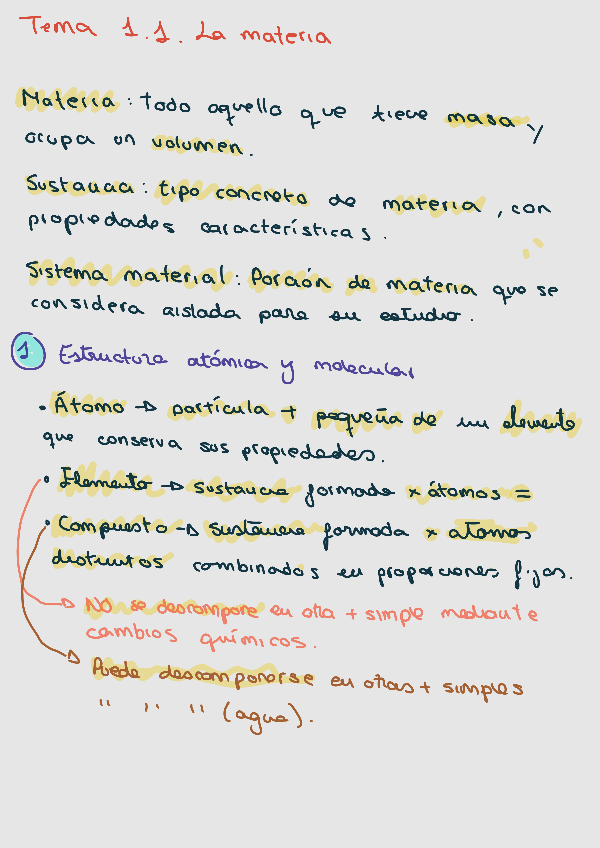 Tema 1.1. La materia
Materia: todo aquello que tiene masa y
ocupa un volumen.
Sustancia: tipo concreto de materia, con
propiedades características.
Sistema material: Porción de materia que se
considera aislada para su estudio.
1. Estructura atómica y molecular
• Átomo → partícula + pequeña de un elemento
que conserva sus propiedades.
• Elemento → sustancia formada x átomos =
• Compuesto → sustancia formada x átomos
distintos combinados en proporciones fijas.
→ NO se descompone en otra + simple mediante
cambios químicos.
→ Puede descomponerse en otras + simples
" " " (agua).